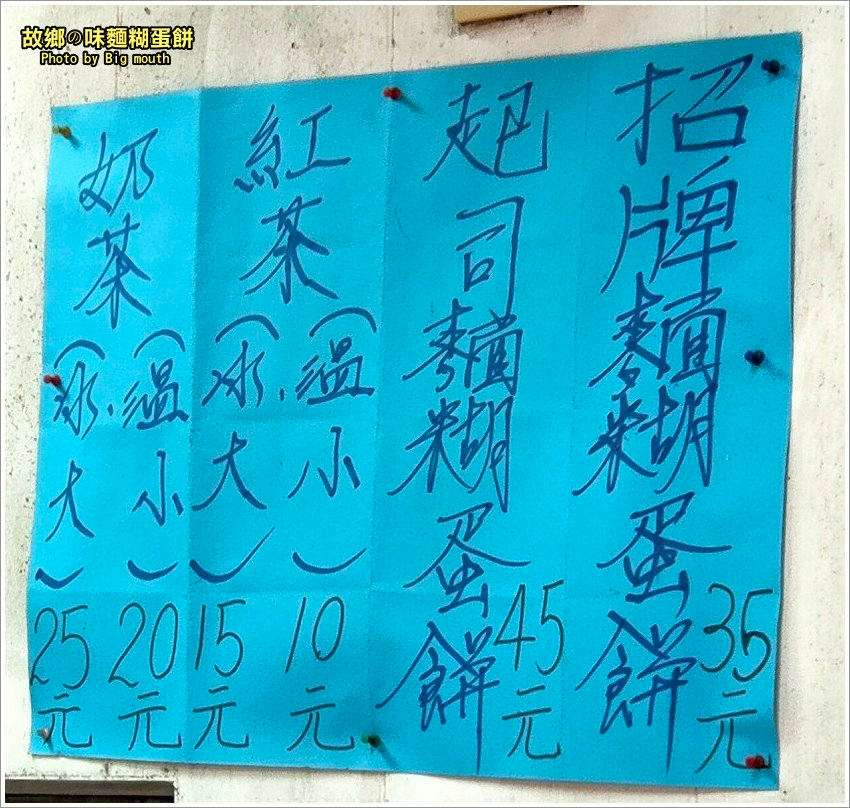 故鄉の味麵糊蛋餅
Photo by Big mouth
招牌麵糊蛋餅
35元
起司麵糊蛋餅
45元
紅茶
(溫小)
10元
(冰.大)
15元
奶茶
(溫小)
20元
(冰.大)
25元